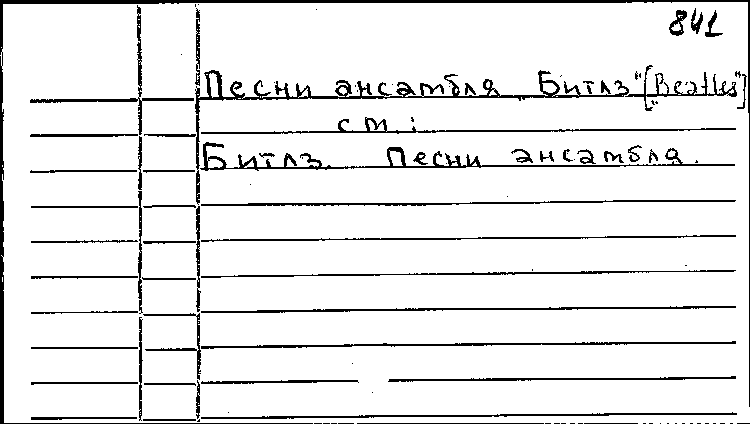 841
Песни ансамбля „Битлз" [„Beatles"]
см.:
Битлз. Песни ансамбля.